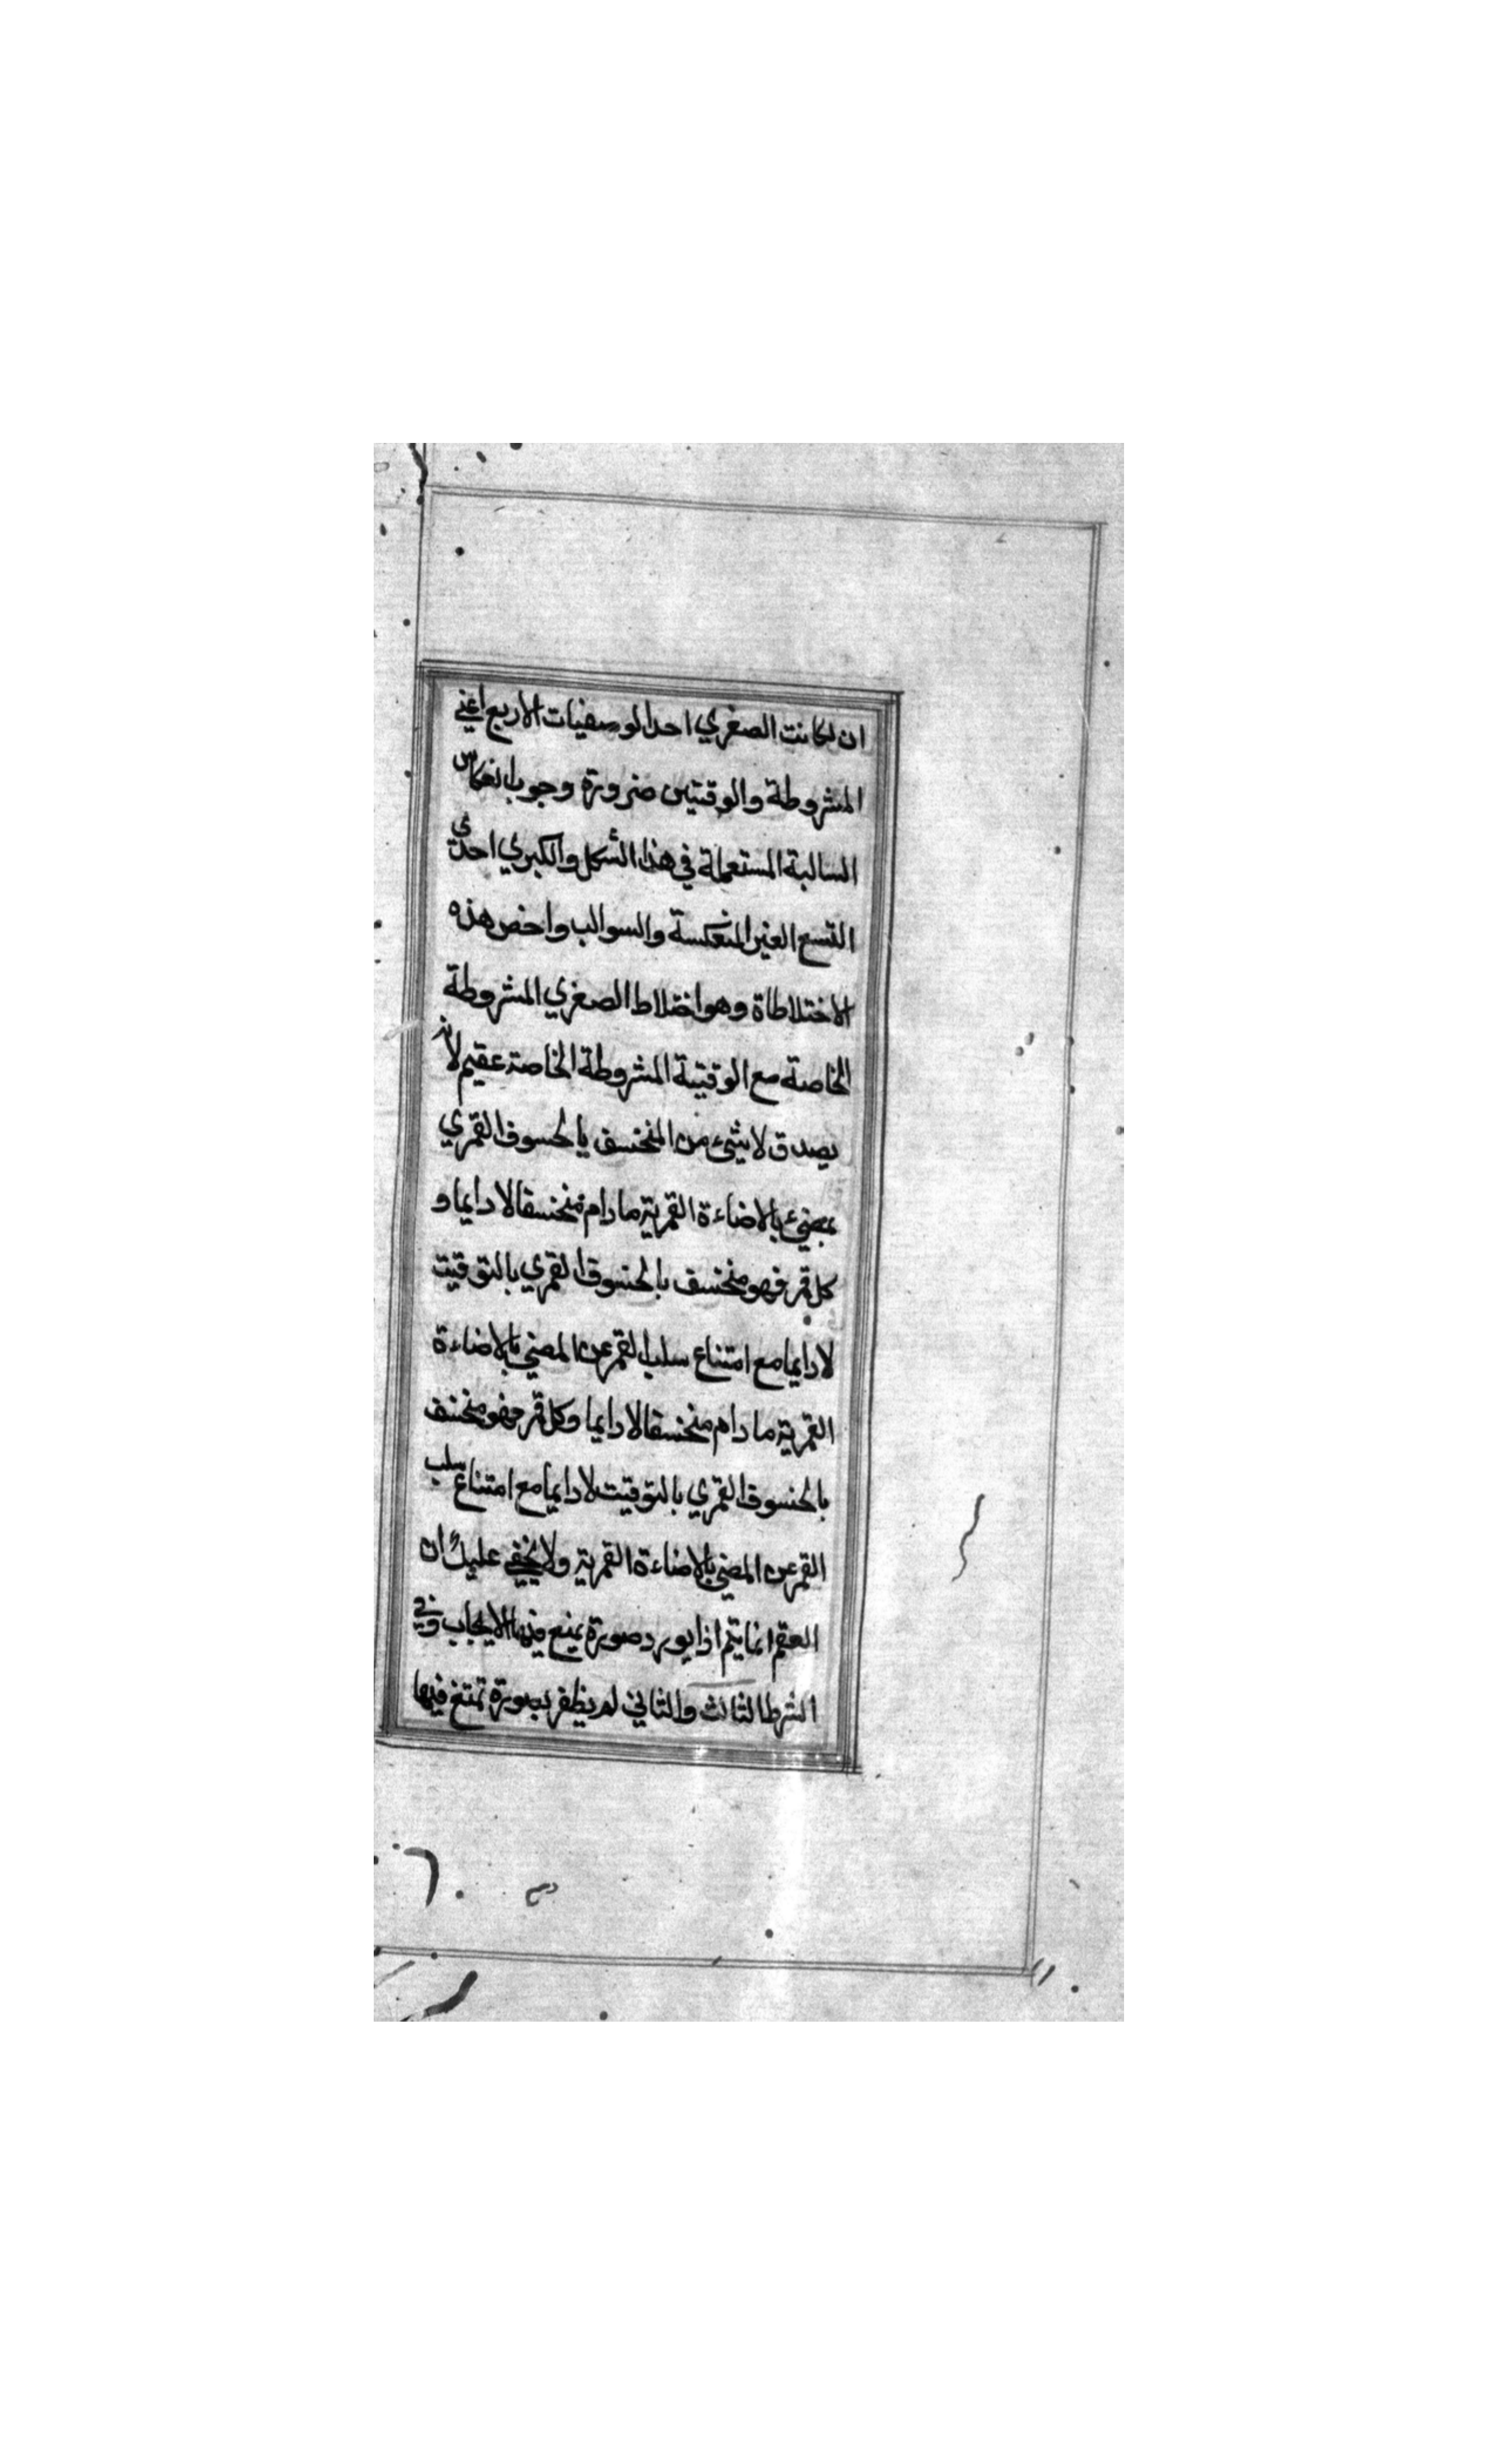 ان لكانت الصغري احدا لوصفيات الاربع اعني
المشروطة والوقتيين ضرورة وجوب انعكاس
السالبة المستعملة في هذا الشكل والكبري احدي
التسع الغير المنعكسة والسوالب واخص هذه
الاختلاطاة وهو اختلاط الصغري المشروطة
الخاصة مع الوقتية المشروطة الخاصة عقيم لانه
يصدق لا شيء من المنخسف بالخسوف القمري
بمضيء بالاضاءة القمرية ما دام منخسفا لا دايما و
كل قمر فهو منخسف بالخسوف القمري بالتوقيت
لا دايما مع امتناع سلب القمر عن المضي بالاضاءة
القمرية ما دام منخسفا لا دايما وكل قمر فهو منخسف
بالخسوف القمري بالتوقيت لا دايما مع امتناع سلب
القمر عن المضي بالاضاءة القمرية ولا يخفي عليك ان
العقم انما يتم اذا يورد صورة يمنع فيها الايجاب وفي
الشرط الثالث والثاني لم يظفر بصورة تمتنع فيها